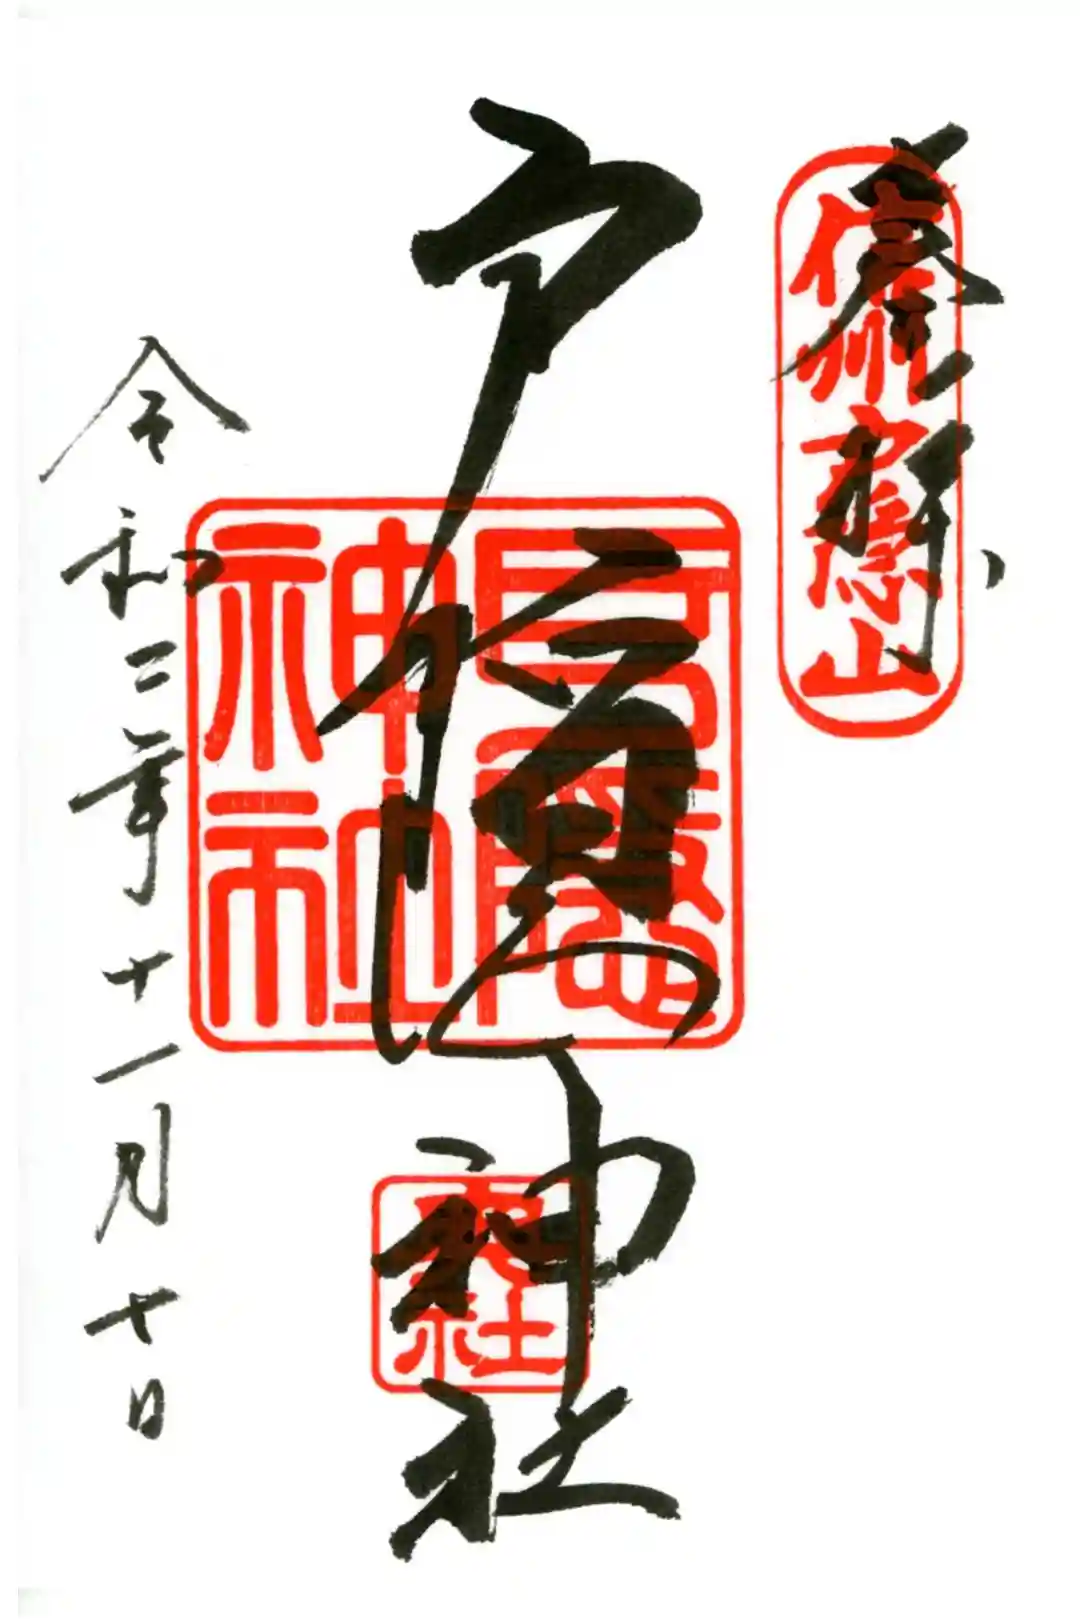 奉拝
信州戸隠山
戸隠神社
戸隠神社
奥社
令和二年十一月七日